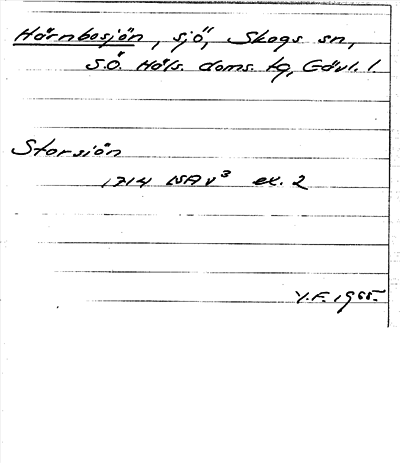 Härnbosjön, sjö, Skogs sn,
S.Ö. Häls. doms. tg, Gävl. l.
Storsjön
1714 LSA v³ ex. 2
Y.F. 1965